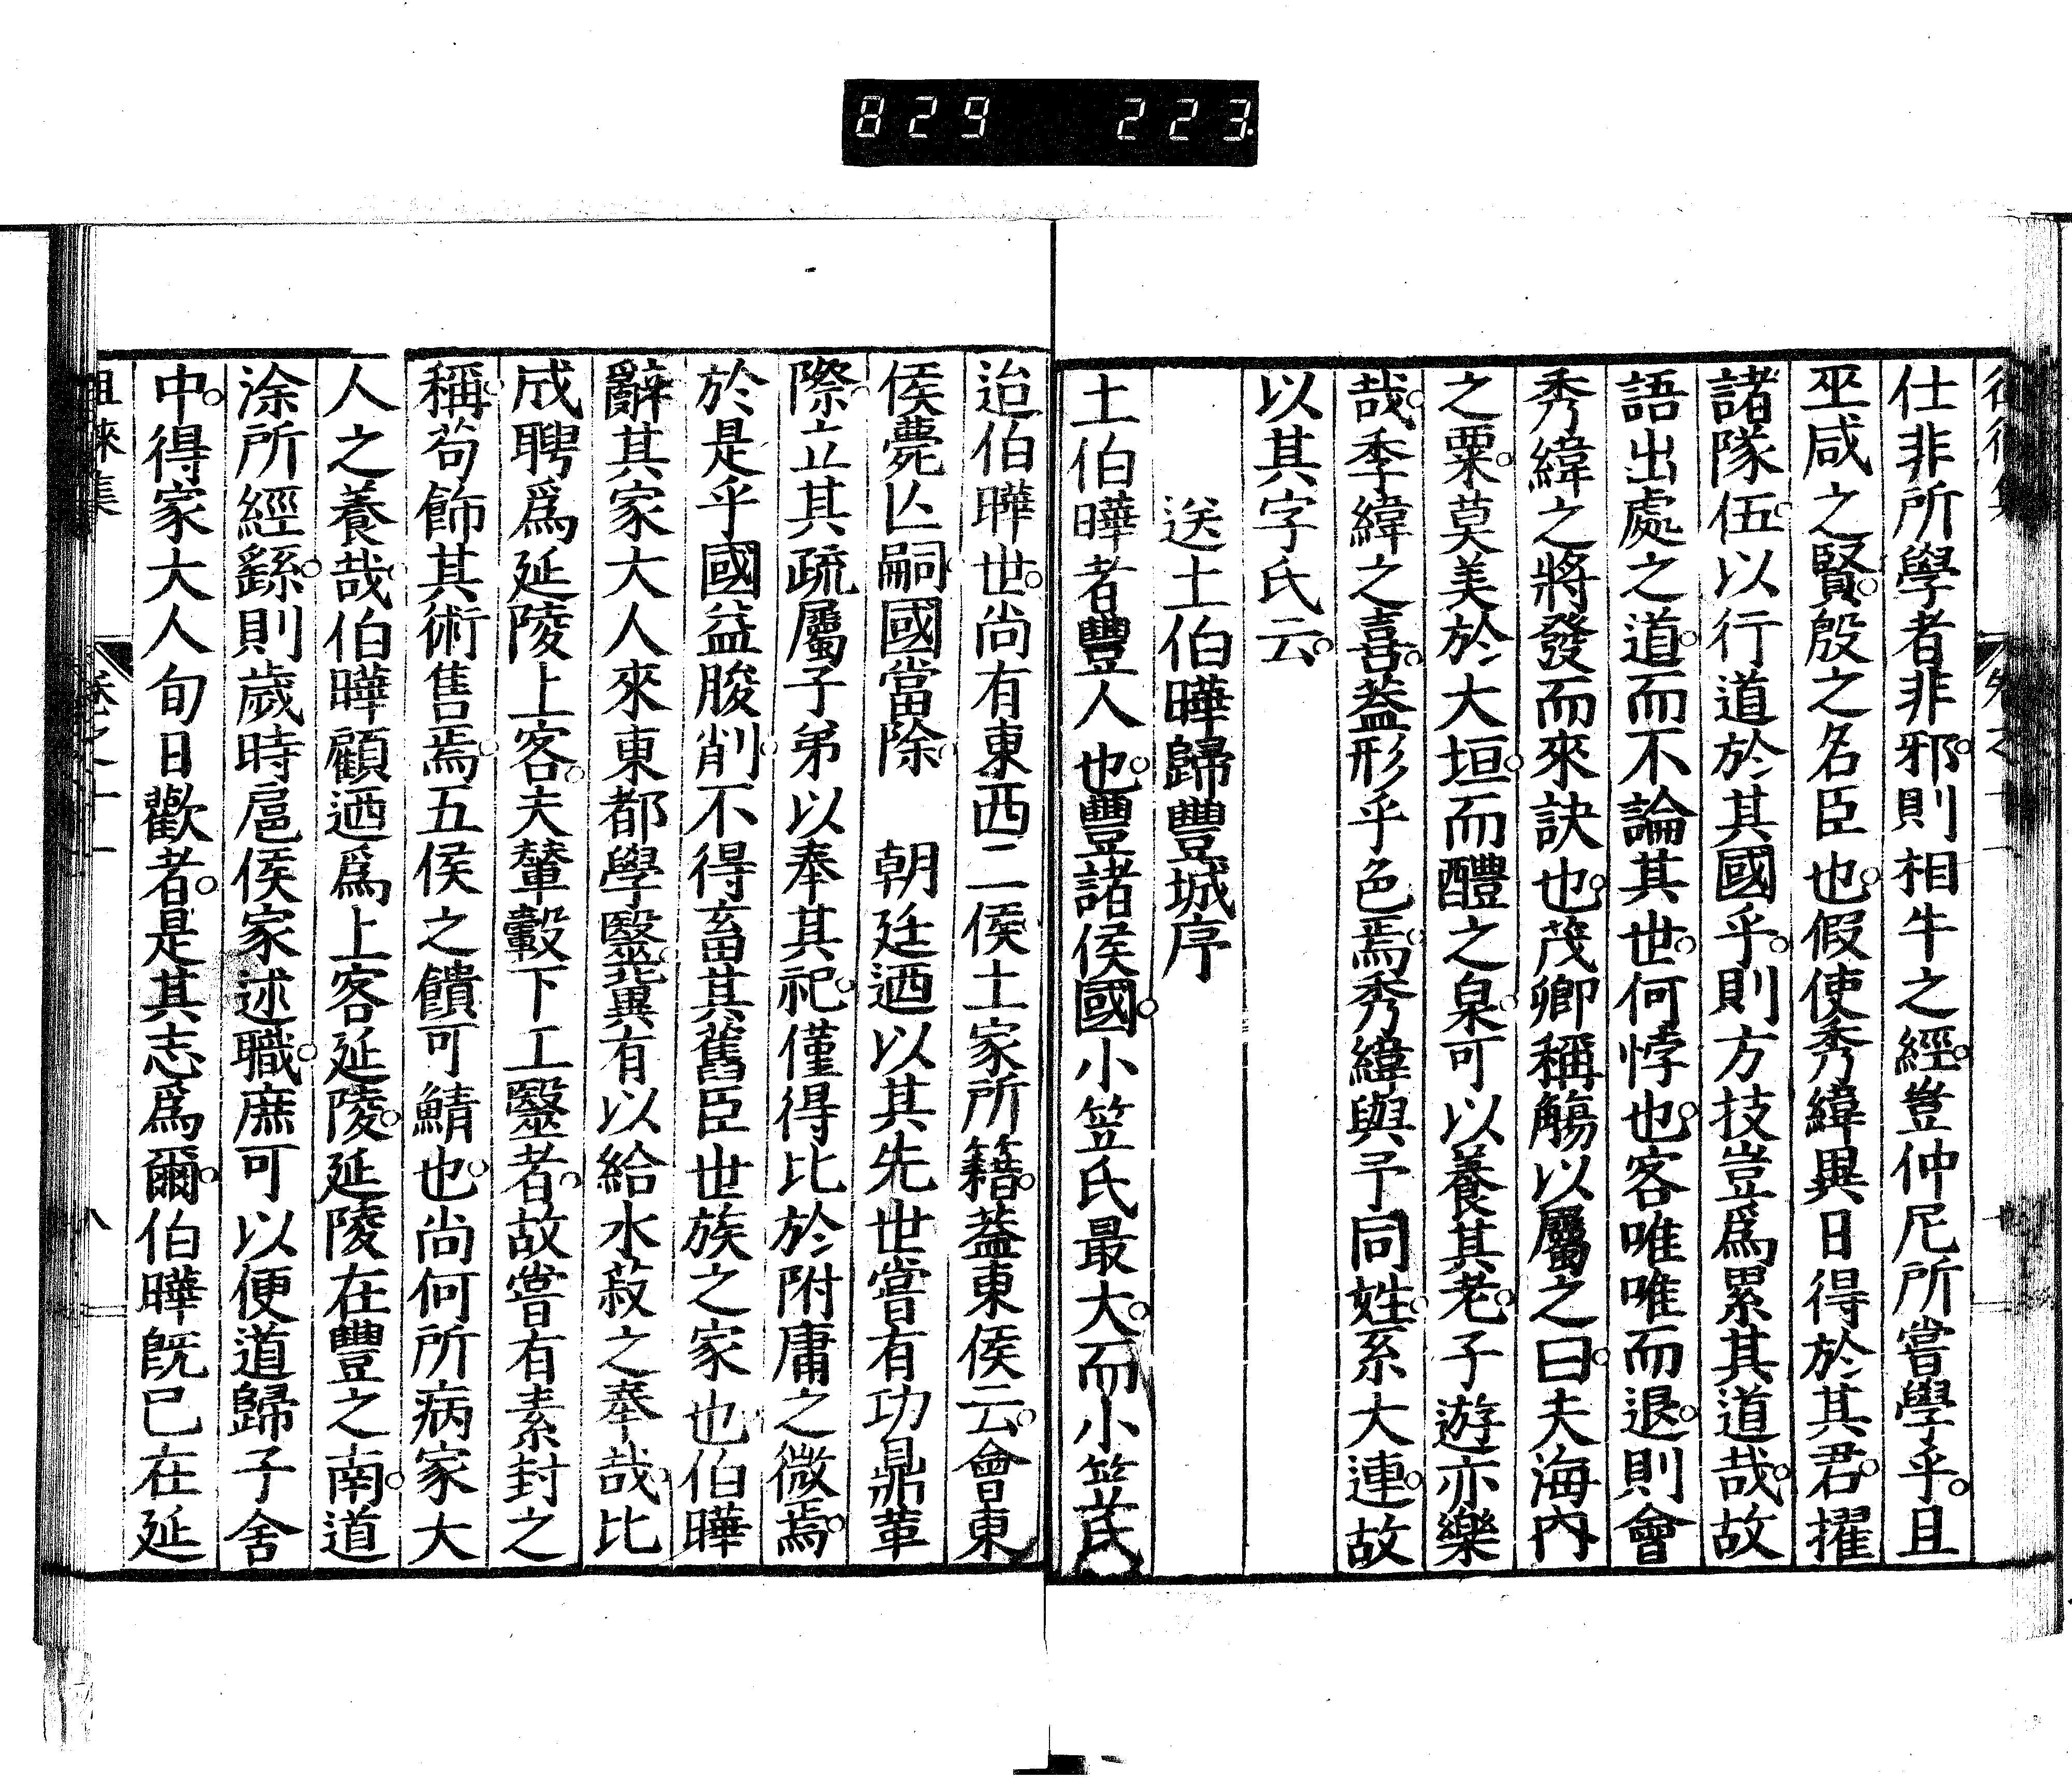 829 223
仕非所學者非邪則相牛之經豈仲尼所嘗學乎且
巫咸之賢殷之名臣也假使秀緯異日得於其君擢
諸隊伍以行道於其國乎則方技豈爲累其道哉故
語出處之道而不論其世何悖也客唯唯而退則會
秀緯之將發而來訣也茂卿稱觴以屬之曰夫海內
之粟莫美於大垣而醴之泉可以養其老子遊亦樂
哉季緯之喜蓋形乎色焉秀緯與予同姓系大連故
以其字氏云
送土伯曄歸豐城序
土伯曄者豐人也豐諸侯國小笠氏最大而小笠氏
迨伯曄世尚有東西二侯土家所籍蓋東侯云會東
侯薨亾嗣國當除 朝廷迺以其先世嘗有功鼎革
際立其疏屬子弟以奉其祀僅得比於附庸之微焉
於是乎國益朘削不得畜其舊臣世族之家也伯曄
辭其家大人來東都學毉冀有以給水菽之奉哉比
成聘爲延陵上客夫輦轂下工毉者故嘗有素封之
稱苟飾其術售焉五侯之饋可鯖也尚何所病家大
人之養哉伯曄顧迺爲上客延陵延陵在豐之南道
涂所經繇則歲時扈侯家述職庶可以便道歸子舍
中得家大人旬日歡者是其志爲爾伯曄旣已在延
徂徠集 卷之十一 八